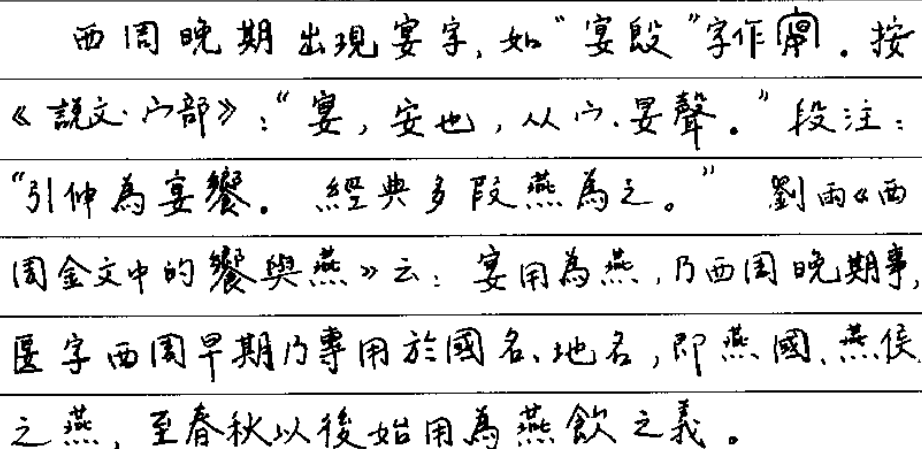 西周晚期出現宴字,如“宴𣪘”字作。按
《說文·宀部》:“宴,安也,从宀.㫃聲。”段注:
“引伸為宴饗。經典多叚燕為之。”劉雨《西
周金文中的饗與燕》云:宴用為燕,乃西周晚期事,
匽字西周早期乃專用於國名、地名,即燕國、燕侯
之燕,至春秋以後始用為燕飲之義。